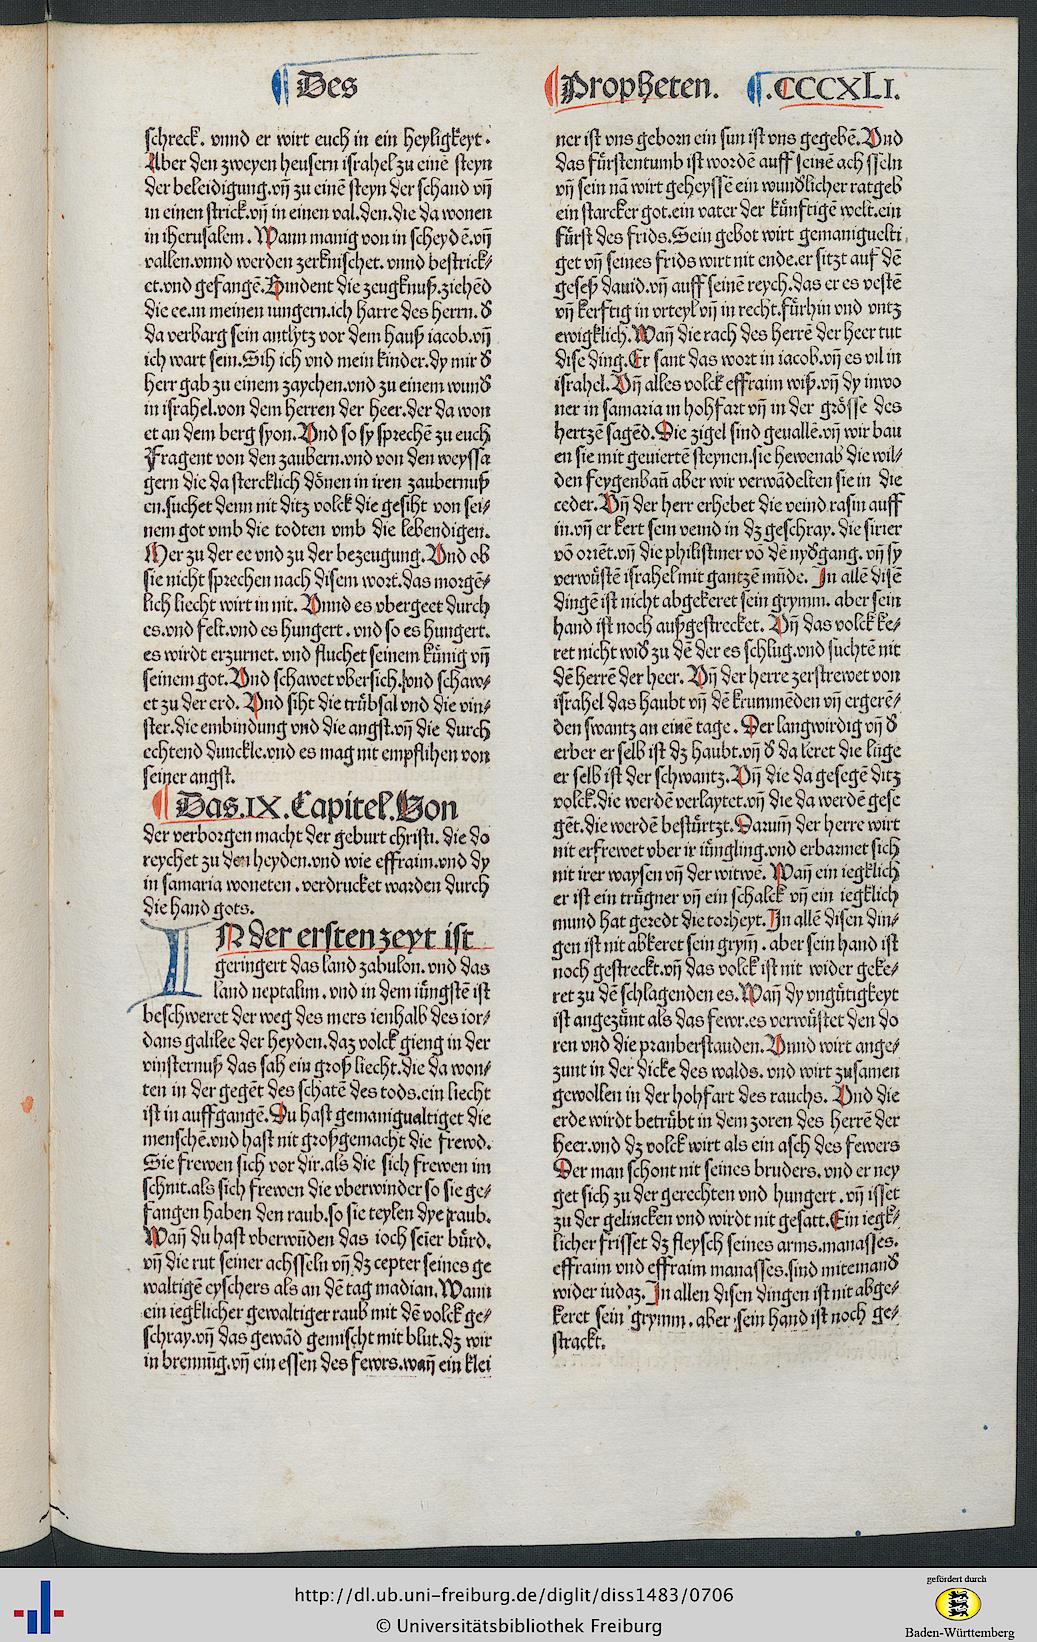 Des
Propheten. .CCCXLI.
schreck. vnnd er wirt euch in ein heyligkeyt.
Aber den zweyen heusern israhel zu einē steyn
der beleidigung.vn̄ zu einē steyn der schand vn̄
in einen strick.vn̄ in einen val.den.die da wonen
in iherusalem. Wann manig von in scheydē.vn̄
vallen.vnnd werden zerknischet. vnnd bestrick⸗
et.vnd gefangē.Bindent die zeugknuß.ziehēd
die ee.in meinen iungern.ich harre des herrn. d̛
da verbarg sein antlytz vor dem hauß iacob.vn̄
ich wart sein.Sih ich vnd mein kinder.dy mir d̛
herr gab zu einem zaychen.vnd zu einem wund̛
in israhel.von dem herren der heer.der da won
et an dem berg syon.Vnd so sy sprechē zu euch
Fragent von den zaubern.vnd von den weyssa
gern die da stercklich dönen in iren zaubernuß
en.suchet denn nit ditz volck die gesiht von sei⸗
nem got vmb die todten vmb die lebendigen.
Mer zu der ee vnd zu der bezeugung.Vnd ob
sie nicht sprechen nach disem wort.das morgē⸗
lich liecht wirt in nit. Vnnd es vbergeet durch
es.vnd felt.vnd es hungert. vnd so es hungert.
es wirdt erzurnet. vnd fluchet seinem künig vn̄
seinem got.Vnd schawet vbersich.vnd schaw⸗
et zu der erd. Vnd siht die trübsal vnd die vin⸗
ster.die embindung vnd die angst.vn̄ die durch
echtend dunckle.vnd es mag nit empflihen von
seiner angst.
Das.IX.Capitel.Von
der verborgen macht der geburt christi. die do
reychet zu den heyden.vnd wie effraim.vnd dy
in samaria woneten. verdrucket warden durch
die hand gots.
IN der ersten zeyt ist
geringert das land zabulon. vnd das
land neptalim. vnd in dem iüngstē ist
beschweret der weg des mers ienhalb des ior⸗
dans galilee der heyden.daz volck gieng in der
vinsternuß das sah ein groß liecht.die da won⸗
ten in der gegēt des schatē des tods.ein liecht
ist in auffgangē.Du hast gemanigualtiget die
menschē.vnd hast nit großgemacht die frewd.
Sie frewen sich vor dir.als die sich frewen im
schnit.als sich frewen die vberwinder so sie ge⸗
fangen haben den raub.so sie teylen dye raub.
Wan̄ du hast vberwūden das ioch seier bürd.
vn̄ die rut seiner achsseln vn̄ dz cepter seines ge
waltigē eyschers als an dē tag madian.Wann
ein iegklicher gewaltiger raub mit dē volck ge⸗
schray.vn̄ das gewād gemischt mit blüt.dz wir
in brennūg.vn̄ ein essen des fewrs.wan̄ ein klei
ner ist vns geborn ein sun ist vns gegebē.Vnd
das fürstentumb ist wordē auff seinē achsseln
vn̄ sein nā wirt geheyssē ein wund̛licher ratgeb
ein starcker got.ein vater der künftigē welt.ein
fürst des frids.Sein gebot wirt gemaniguelti
get vn̄ seines frids wirt nit ende.er sitzt auf dē
geseß dauid.vn̄ auff seinē reych.das er es vestē
vn̄ kerftig in vrteyl vn̄ in recht.fürhin vnd vntz
ewigklich.Wan̄ die rach des herrē der heer tut
dise ding.Er sant das wort in iacob.vn̄ es vil in
israhel.Vn̄ alles volck effraim wiß.vn̄ dy inwo
ner in samaria in hohfart vn̄ in der grösse des
hertzē sagēd.Die zigel sind geuallē.vn̄ wir bau
en sie mit geuiertē steynen.sie hewenab die wil⸗
den feygenban̄ aber wir verwādelten sie in die
ceder.Vn̄ der herr erhebet die veind rasin auff
in.vn̄ er kert sein veind in dz geschray. die sirier
vō oriēt.vn̄ die philistiner vō dē nyd̛gang. vn̄ sy
verwüstē israhel mit gantzē mūde. In allē disē
dingē ist nicht abgekeret sein grymm. aber sein
hand ist noch außgestrecket. Vn̄ das volck ke⸗
ret nicht wid̛ zu dē der es schlug.vnd suchtē nit
dē herrē der heer. Vn̄ der herre zerstrewet von
israhel das haubt vn̄ dē krummēden vn̄ ergerē⸗
den swantz an einē tage. Der langwirdig vn̄ d̛
erber er selb ist dz haubt.vn̄ d̛ da leret die lüge
er selb ist der schwantz.Vn̄ die da gesegē ditz
volck.die werdē verlaytet.vn̄ die da werdē gese
gēt.die werdē bestürtzt.Darum̄ der herre wirt
nit erfrewet vber ir iüngling.vnd erbarmet sich
nit irer waysen vn̄ der witwē. Wan̄ ein iegklich
er ist ein trügner vn̄ ein schalck vn̄ ein iegklich
mund hat geredt die torheyt.In allē disen din⸗
gen ist nit abkeret sein grym̄. aber sein hand ist
noch gestreckt.vn̄ das volck ist nit wider geke⸗
ret zu dē schlagenden es.Wan̄ dy vngütigkeyt
ist angezünt als das fewr.es verwüstet den do
ren vnd die pranberstauden.Vnnd wirt ange⸗
zunt in der dicke des walds. vnd wirt zusamen
gewollen in der hohfart des rauchs. Vnd die
erde wirdt betrübt in dem zoren des herrē der
heer.vnd dz volck wirt als ein asch des fewers
Der man schont nit seines bruders. vnd er ney
get sich zu der gerechten vnd hungert. vn̄ isset
zu der gelincken vnd wirdt nit gesatt.Ein iegk⸗
licher frisset dz fleysch seines arms.manasses.
effraim vnd effraim manasses.sind miteinand̛
wider iudaz.In allen disen dingen ist nit abge⸗
keret sein grymm. aber sein hand ist noch ge⸗
strackt.
http://dl.ub.uni-freiburg.de/diglit/diss1483/0706
© Universitätsbibliothek Freiburg
gefördert durch
Baden-Württemberg